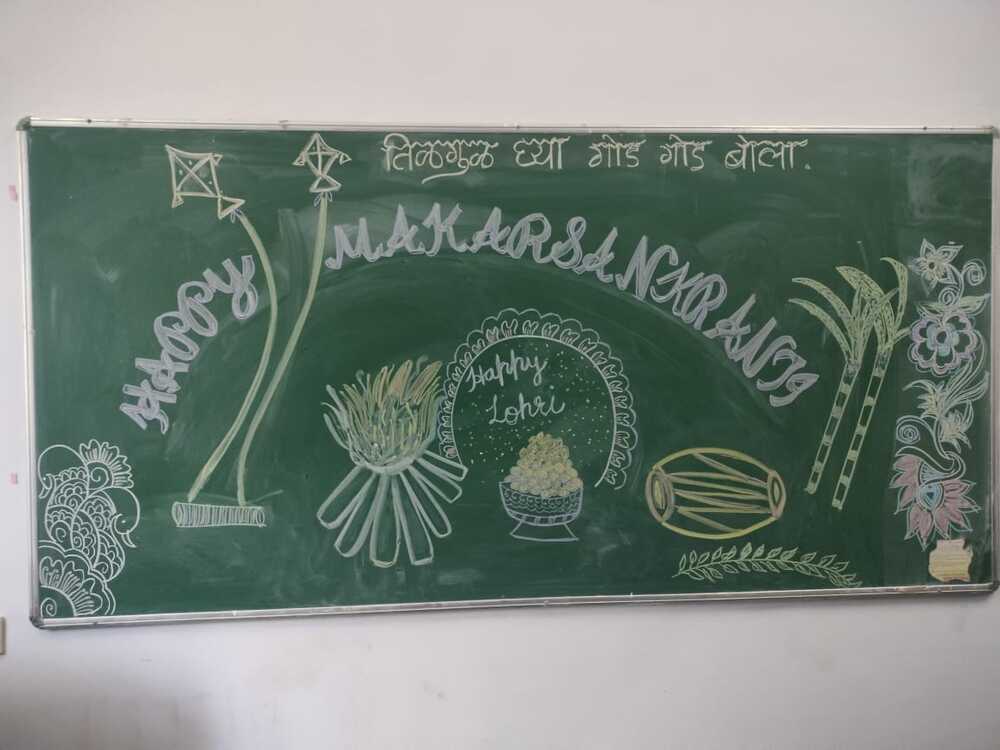 तिळगुळ घ्या गोड गोड बोला.
HAPPY MAKARSANKRANTI
Happy
Lohri